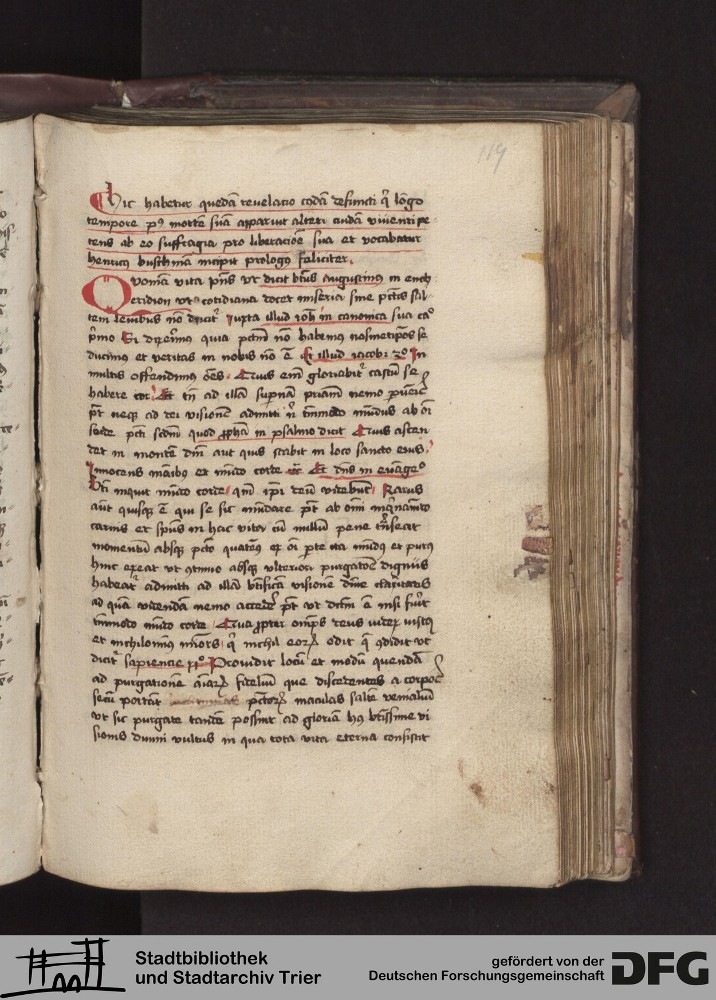 119
Hic habetur quedā revelacio cōdā defuncti q̄ lōgo
tempore pꝰ mortē suā apparuit alteri cuidā viventi pe
tens ab eo suffragia pro liberacōe sua et vocabatur
henricus busthmā incipit prologꝰ feliciter
Quoniā vita pn̄s ut dicit btūs Augustinus in ench
eridion ut cotidiana docet miseria sine pctīs sal
tem levibus nō ducit᷑ iuxta illud ioh̄ in canonica sua caº
pͥmo Si dixerimꝰ quia pctm̄ nō habemꝰ nosmetipōs se
ducimus et veritas in nobis nō ē Et illud iacobi 3º In
multis offendimꝰ oēs Quis em̄ gloriabit᷑ castū se
habere cor Et tn̄ ad illā supnā priam̄ nemo
pt̄ neqꝫ ad dei visionē admitti nͥ tmmodo mūdus ab oī
sorde pcti scdm̄ quod ꝓphā in psalmo dicit Quis ascen
det in montē dnī aut quis stabit in loco sancto eius
Innocens manibꝰ et mūdo corde Et dn̄s in evāgeº
Bti inquit mūdo corde qm̄ ip̄i deū videbūt Rarus
aūt quisqꝫ ē qui se sic mūdare pt̄ ab omī inqnamto
carnis et spūs in hac vita cū nullū pene trāseat
momentū absqꝫ pctō quatenꝰ ex oī pte ita mūdꝰ et purꝰ
hinc exeat ut absqꝫ ulteriori purgatōe dignus
habeat᷑ admitti ad illā btīficā visionē dīne claritatis
ad quā videndā nemo accedere pt̄ ut dctm̄ ē nisi fuit᷑
tmmodo mūdo corde Quapropter omps deus iudex iustꝰ
et nichilominꝰ qͥ nichil eorꝫ odit q̄ ꝯdidit ut
dicit᷑ sapiencie Providit locū et modū quendā
ad purgationē aīarꝫ fidelium que discedentes a corpoꝫ
secū portāt pctorꝫ maculas saltē venialiū
ut sic purgate tandē possint ad gloriā hꝰ btissime vi
sionis divini vultus in qua tota vita eterna consistit
Stadtbibliothek
und Stadtarchiv Trier
gefördert von der
Deutschen Forschungsgemeinschaft
DFG